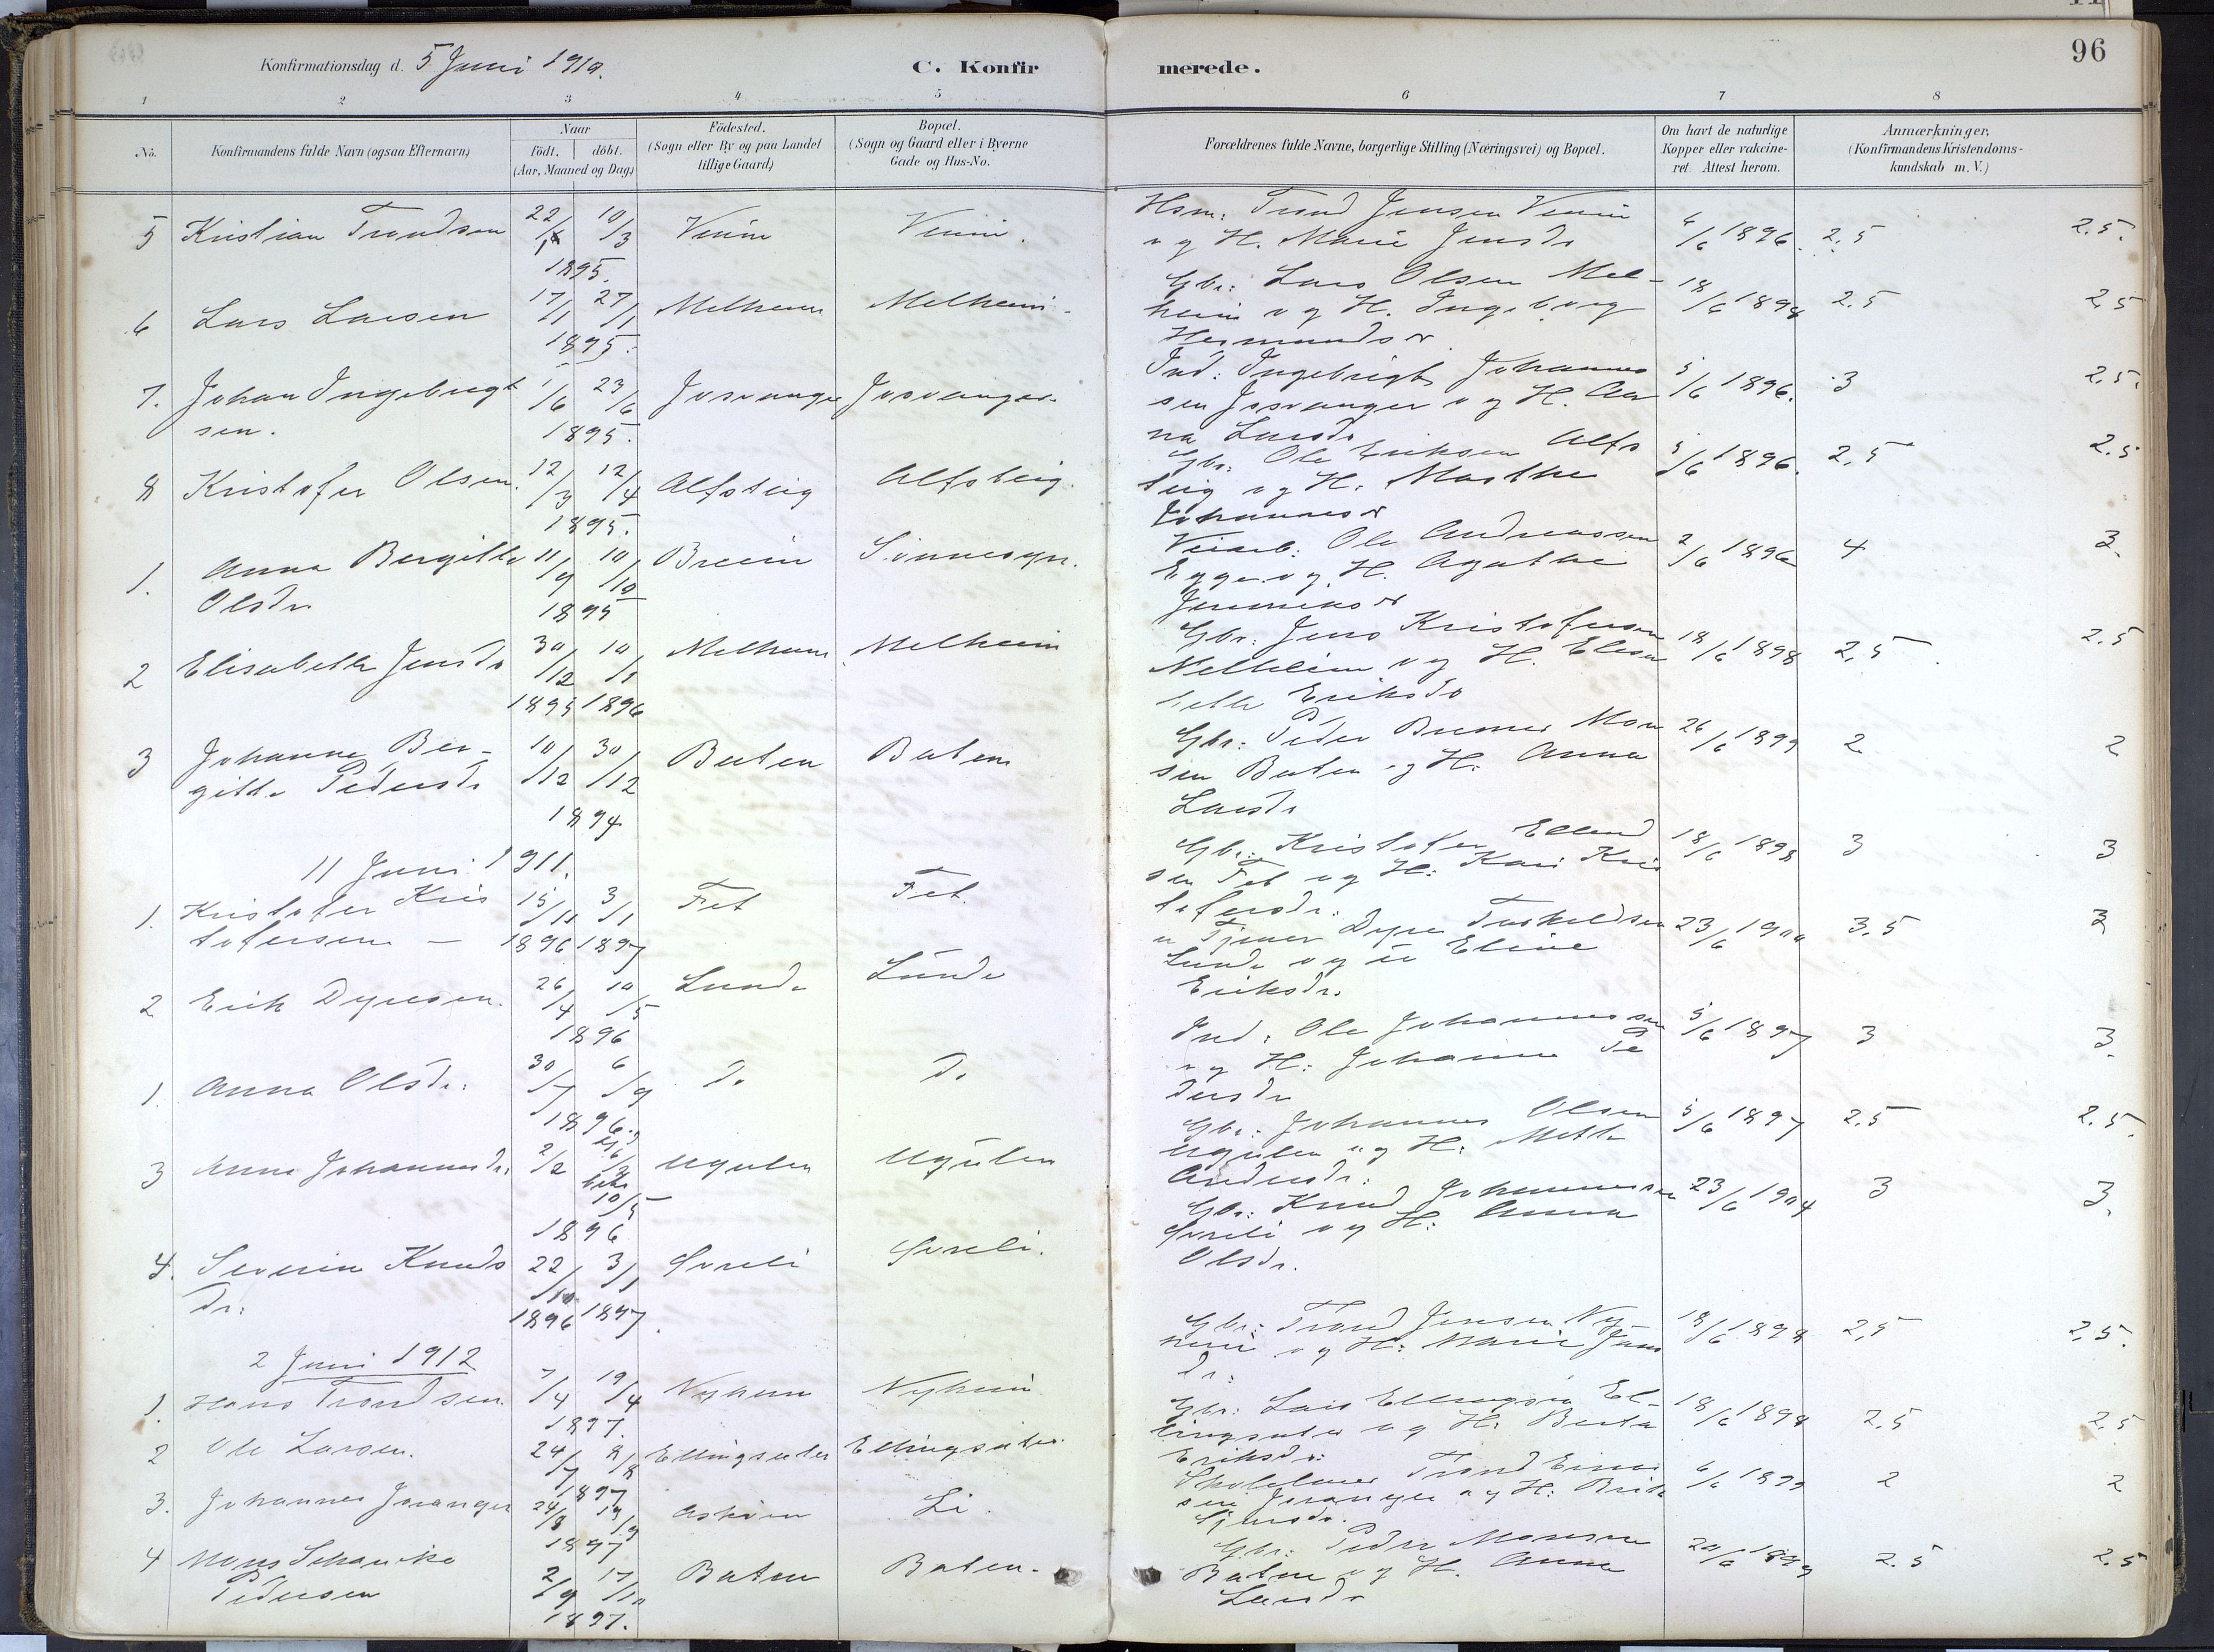 96
Konfirmationsdag d. 5 Juni 1910.
C. Konfirmerede.
1 2 3 4 5 6 7 8
No. Konfirmandens fulde Navn (ogsaa Efternavn) Naar Födt. döbt. (Aar, Maaned og Dag) Födested. (Sogn eller By og paa Landet tillige Gaard) Bopæl. (Sogn og Gaard eller i Byerne Gade og Hus-No. Forældrenes fulde Navne, borgerlige Stilling (Næringsvei) og Bopæl. Om havt de naturlige Kopper eller vakcineret. Attest herom. Anmærkninger. (Konfirmandens Kristendomskundskab m. V.)
5 Kristian Trondsen 22/1 10/3 Hsm: Trond Jensen 4/6 1896. 2.5 2.5.
1895. og H. Marie Jensdr
6 Lars Larsen 17/1 27/1 Melheim Melheim. Gbr: Lars Olsen Mel- 18/6 1898 2.5 2.5
1895. heim og H. Ingeborg
Hermundsdr
7. Johan Ingebrigt 1/6 23/6 Ind: Ingebrigt Johannes 5/6 1896. 3 2.5.
sen. 1895. sen og H. An
na Larsdr
8 Kristofer Olsen. 12/3 12/4 Alfsteig Alfsteig. Gbr: Ole Eriksen Alfs 5/6 1896. 2.5 2.5
1895. teig og H. Marthe
Johannesdr
1. Anna Bergitte 11/9 10/10 Breein Veiarb: Ole Andreassen 2/6 1896 4 3.
Olsdr 1895 Egge og H. Agathe
2 Elisabeth Jensdr 30/12 10/1 Melheim Melheim Gbr: Jens Kristofersen 18/6 1898 2.5 2.5
1895 1896 Melheim og H. Elisa
beth Eriksdr
3 Johanne Ber- 10/12 30/12 Baten Baten Gbr: Peder Bremer Mon 26/6 1899 2 2
gitte Pedersdr 1894 sen Baten og H: Anna
Larsdr
11 Juni 1911.
1. Kristofer Kris 15/11 3/1 Fet Fet. Gbr: Kristofer Ellend 18/6 1898 3 3
tofersen - 1896 1897 sen Fet og H: Kari Kris
tofersdr.
2 Erik Dyresen. 26/4 10/5 Lunde Lunde Tjener Dyre Torkeldsen 23/6 1900 3.5 3
1896 Lunde og Eline
Eriksdr.
1. Anna Olsdr. 30/7 6/9 do do Ind: Ole Johannessen 5/6 1897 3 3.
1896. og H: Johanne Pe
dersdr
3 Anna Johannesdr. 2/2 10/5 Ugulen Ugulen Gbr: Johannes Olsen 5/6 1897 2.5 2.5.
1896 Ugulen og H: Mette
Andersdr.
4. Severine Knuds 22/10 3/1 Gbr: Knud Johannessen 23/6 1904 3 3.
dr. 1896 1897. og H: Anna
Olsdr.
2 Juni 1912
1. Hans Trondsen. 7/4 19/4 Nyheim Nyheim Gbr: Trond Jensen Ny- 18/6 1898 2.5 2.5.
1897. heim og H: Marie Jens
dr.
2 Ole Larsen. 24/7 8/8 Ellingsæter Ellingsæter. Gbr: Lars Ellingsen El- 18/6 1898 2.5 2.5
1897 lingsæter og H: Berta
Eriksdr.
3. Johannes Joranger 24/8 19/9 Li. Skolelærer Trond Einar 6/6 1899 2 2
1897 sen Joranger og H: Brita
4 Mons Schanche 2/9 17/10 Baten Baten. Gbr: Peder Monsen 20/6 1899 2.5 2.5
Pedersen 1897. Baten og H. Anna
Larsdr